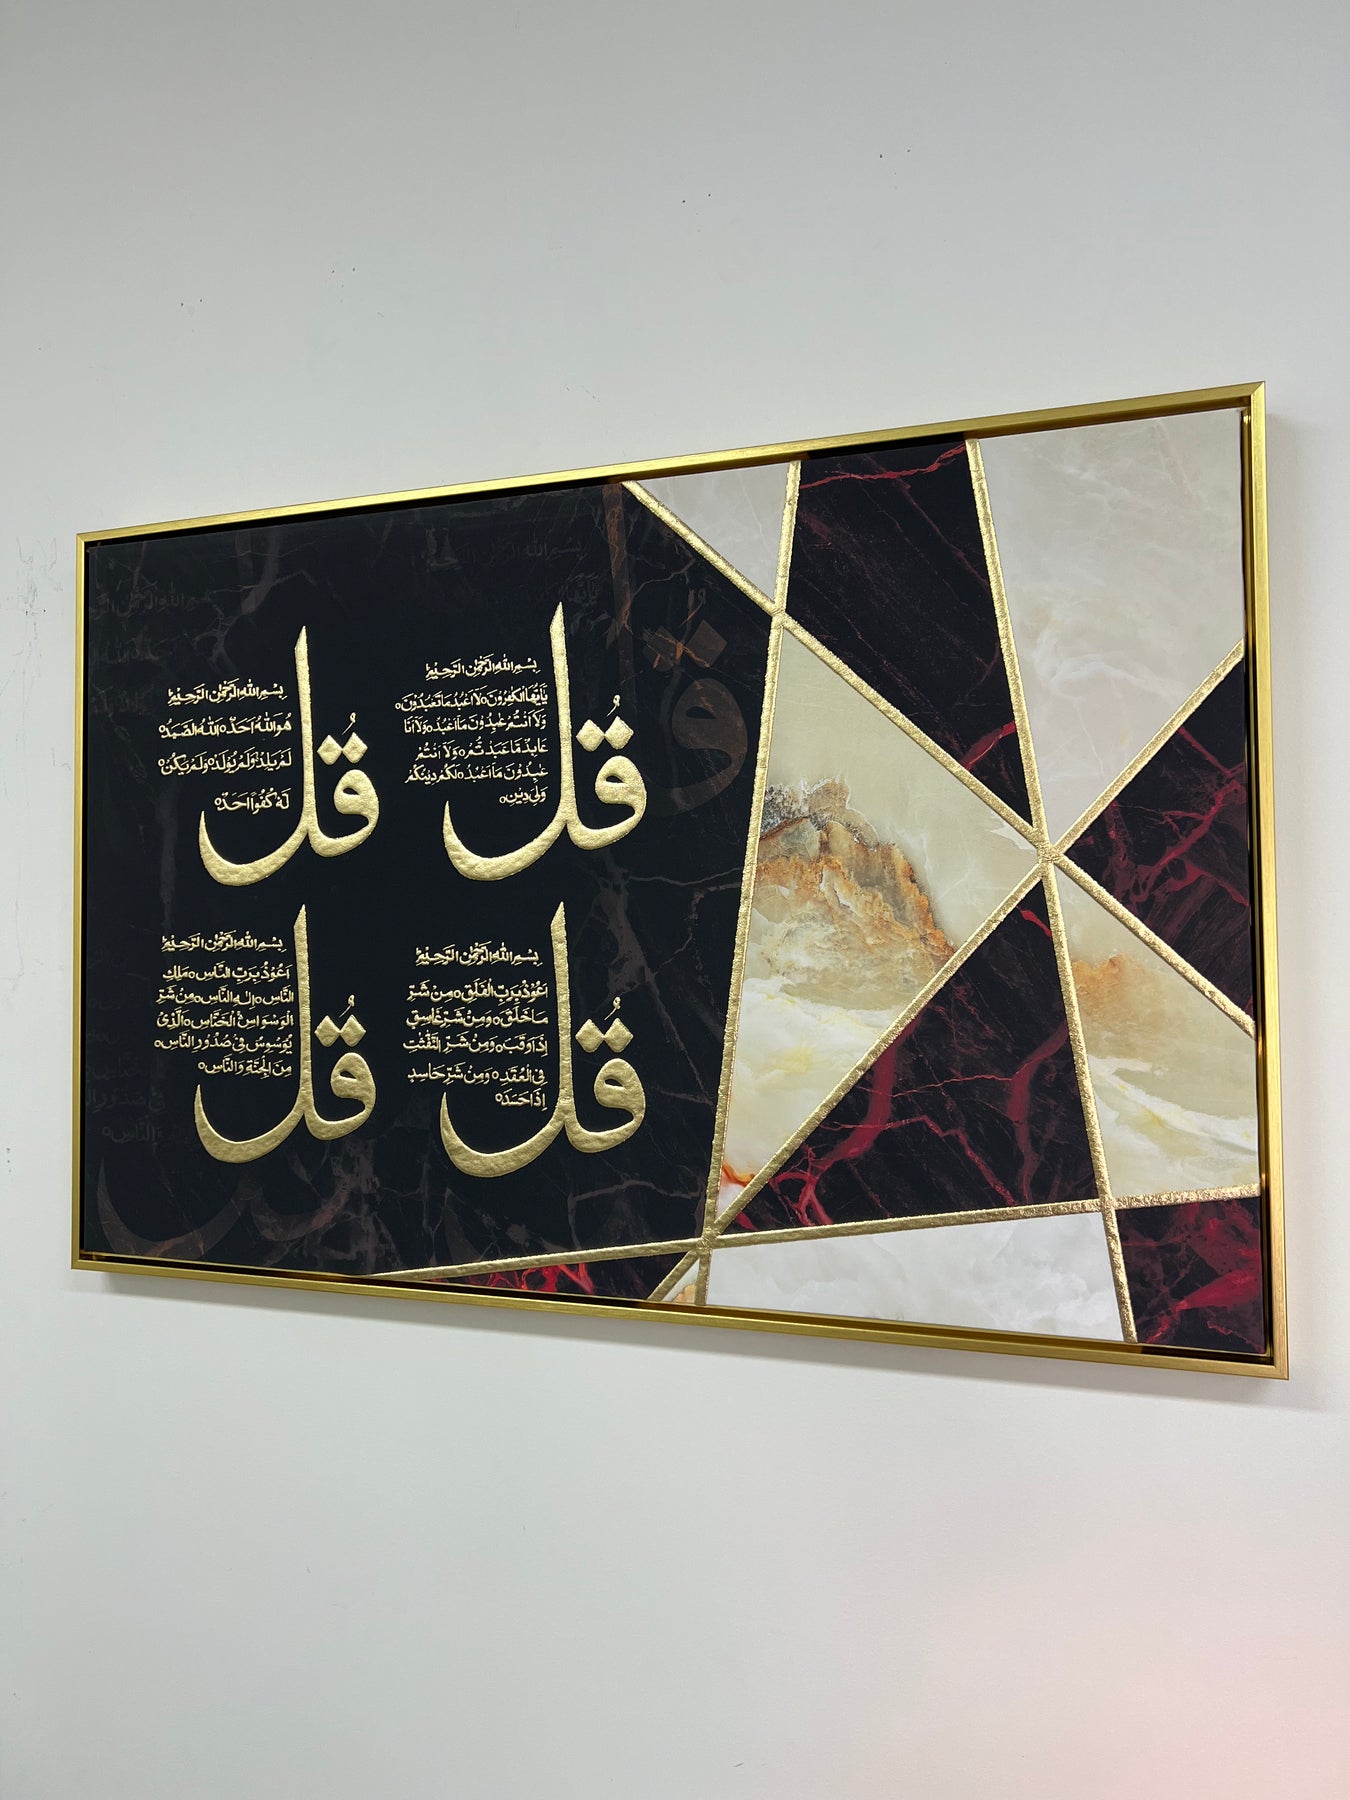 قُل
بِسْمِ اللهِ الرَّحْمٰنِ الرَّحِيْمِ
يٰٓاَيُّهَا الْكٰفِرُوْنَ ۝ لَاۤ اَعْبُدُ مَا تَعْبُدُوْنَ ۝
وَلَاۤ اَنْتُمْ عٰبِدُوْنَ مَاۤ اَعْبُدُ ۝ وَلَاۤ اَنَا
عَابِدٌ مَّا عَبَدْتُّمْ ۝ وَلَاۤ اَنْتُمْ
عٰبِدُوْنَ مَاۤ اَعْبُدُ ۝ لَكُمْ دِيْنُكُمْ
وَلِيَ دِيْنِ ۝
قُل
بِسْمِ اللهِ الرَّحْمٰنِ الرَّحِيْمِ
هُوَ اللهُ اَحَدٌ ۝ اَللهُ الصَّمَدُ ۝
لَمْ يَلِدْ ۙ وَلَمْ يُوْلَدْ ۝ وَلَمْ يَكُنْ
لَّهٗ كُفُوًا اَحَدٌ ۝
قُل
بِسْمِ اللهِ الرَّحْمٰنِ الرَّحِيْمِ
اَعُوْذُ بِرَبِّ الْفَلَقِ ۝ مِنْ شَرِّ
مَا خَلَقَ ۝ وَمِنْ شَرِّ غَاسِقٍ
اِذَا وَقَبَ ۝ وَمِنْ شَرِّ النَّفّٰثٰتِ
فِي الْعُقَدِ ۝ وَمِنْ شَرِّ حَاسِدٍ
اِذَا حَسَدَ ۝
قُل
بِسْمِ اللهِ الرَّحْمٰنِ الرَّحِيْمِ
اَعُوْذُ بِرَبِّ النَّاسِ ۝ مَلِكِ
النَّاسِ ۝ اِلٰهِ النَّاسِ ۝ مِنْ شَرِّ
الْوَسْوَاسِ الْخَنَّاسِ ۝ الَّذِيْ
يُوَسْوِسُ فِيْ صُدُوْرِ النَّاسِ ۝
مِنَ الْجِنَّةِ وَالنَّاسِ ۝